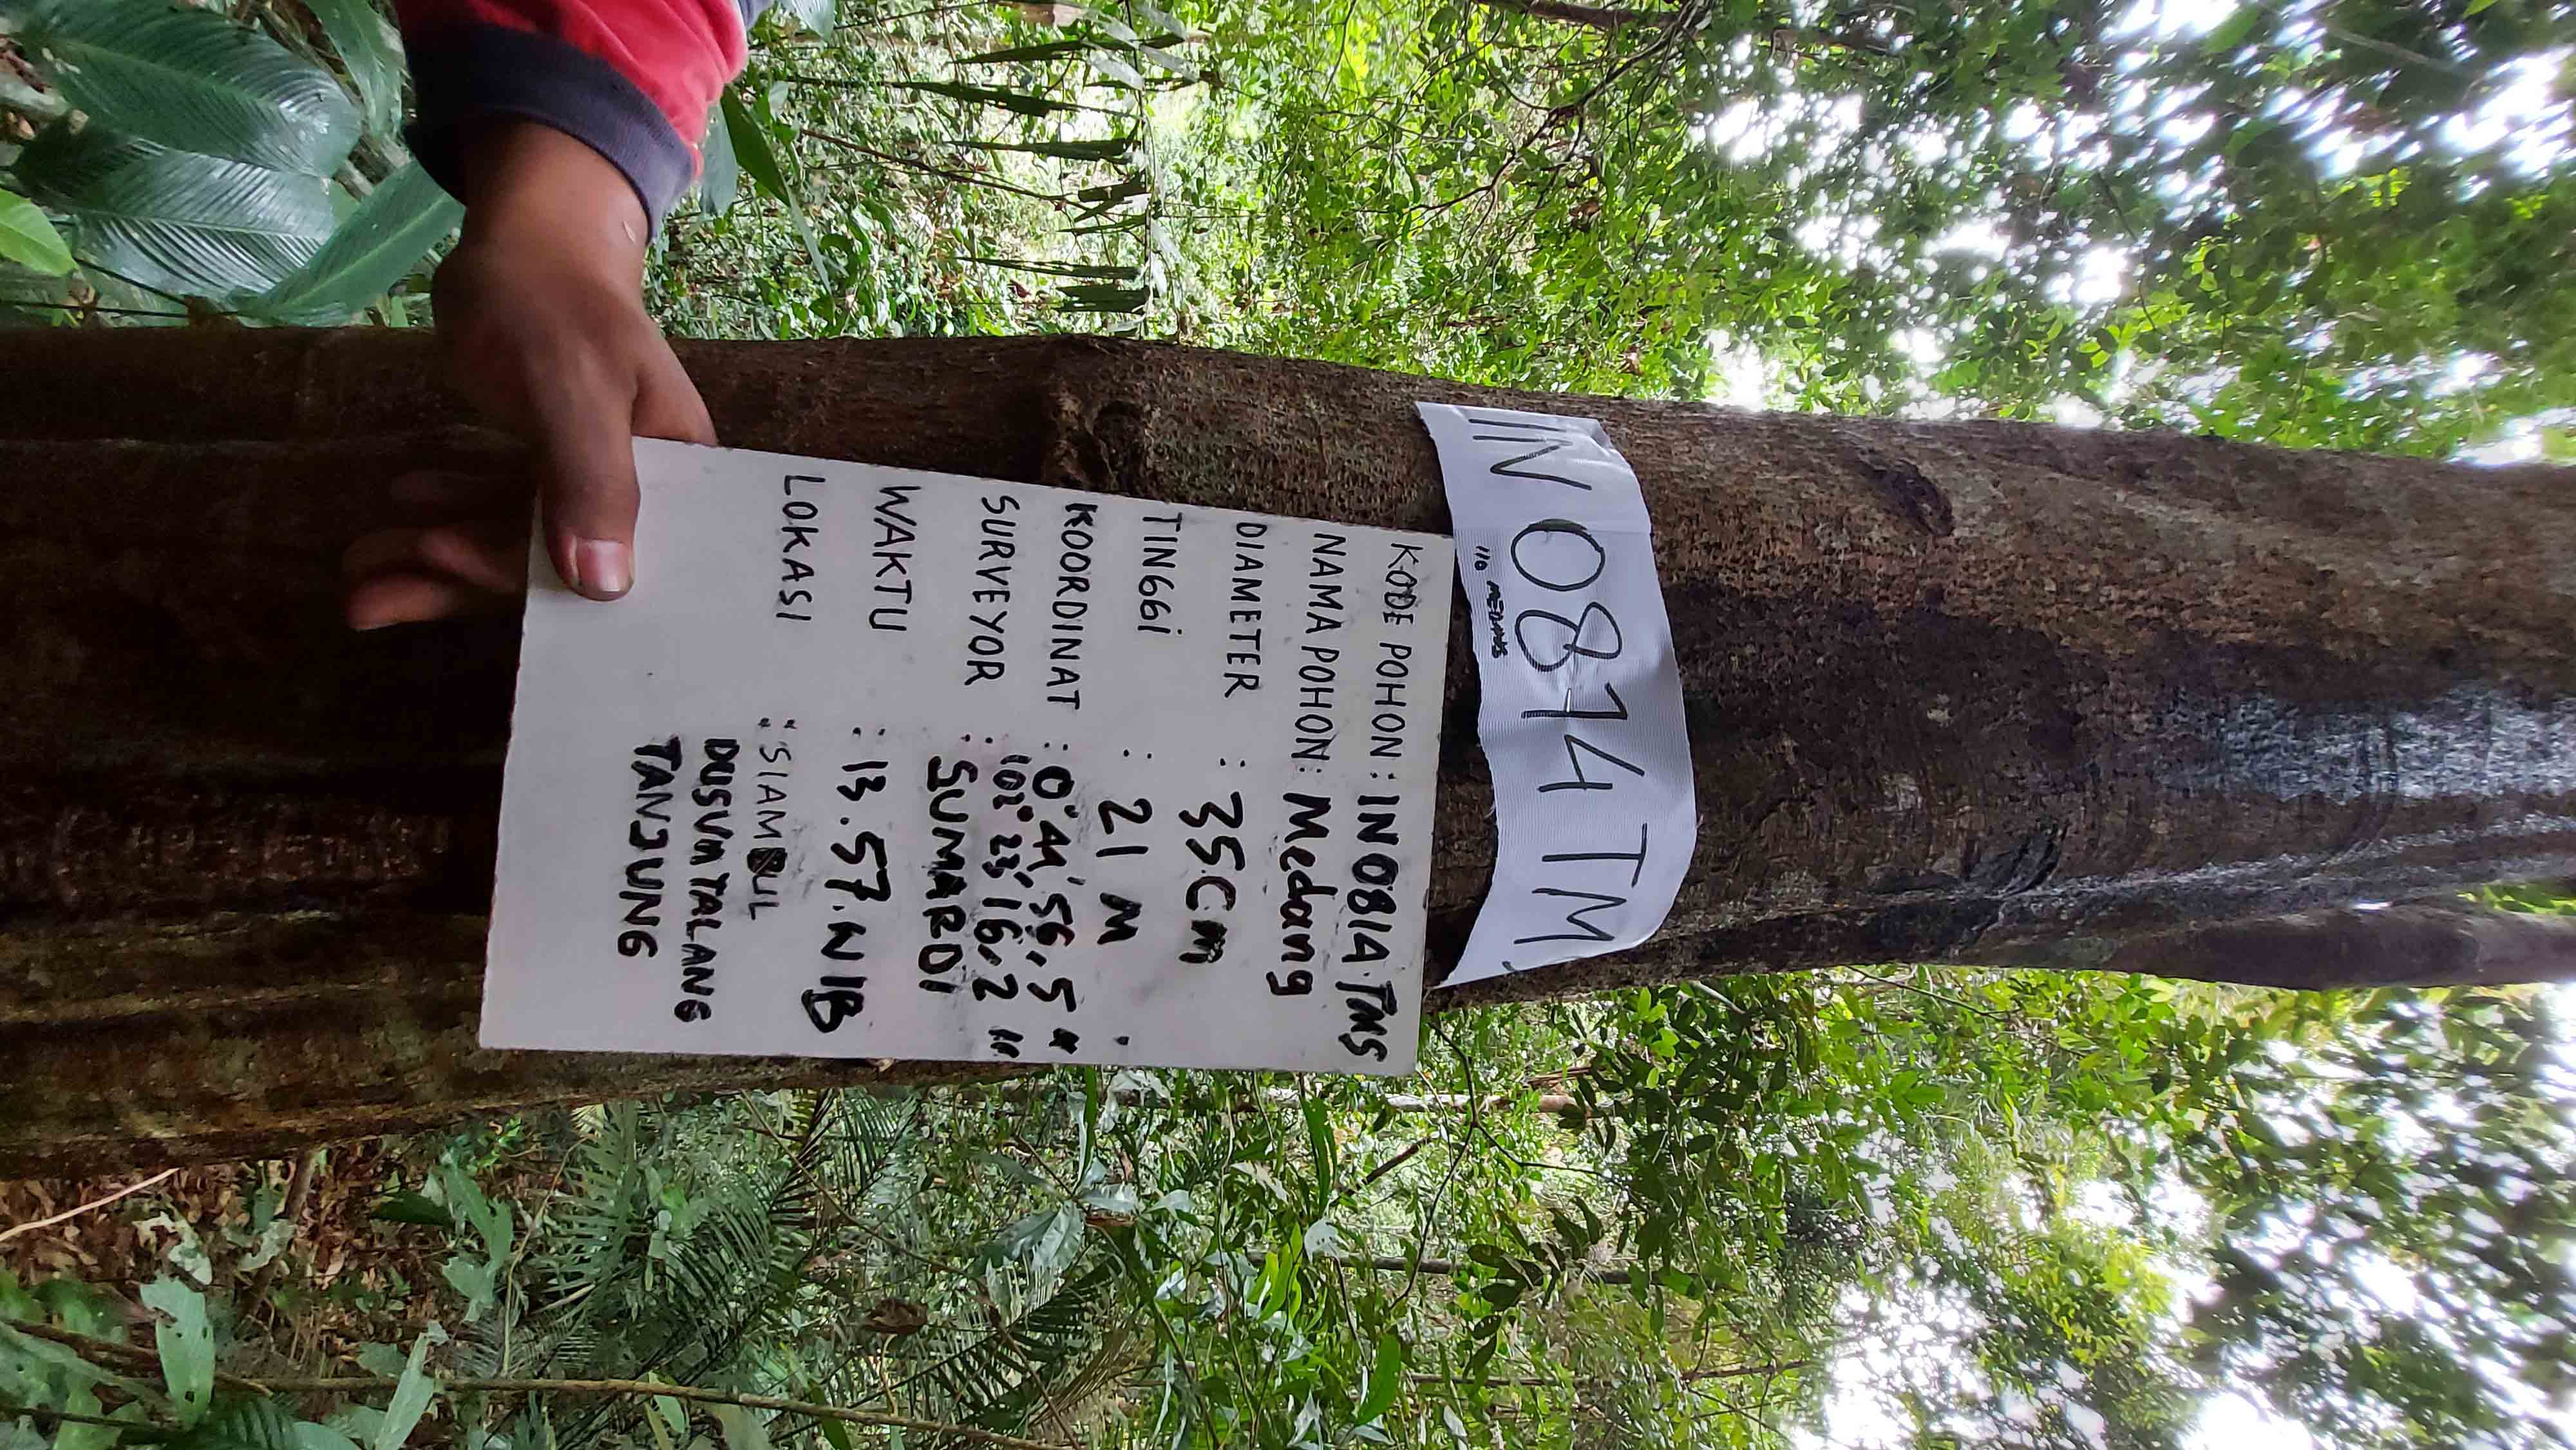 IN 0814 TM
110 MEDANG
KODE POHON : IN 0814.TMS
NAMA POHON : Medang
DIAMETER : 35 Cm
TINGGi : 21 M
KOORDINAT : 0° 44' 56.5"
: 102° 25' 16.2"
SURVEYOR : SUMARDI
WAKTU : 13.57. WIB
LOKASI : SIAMBUL
DUSUN TALANG
TANJUNG